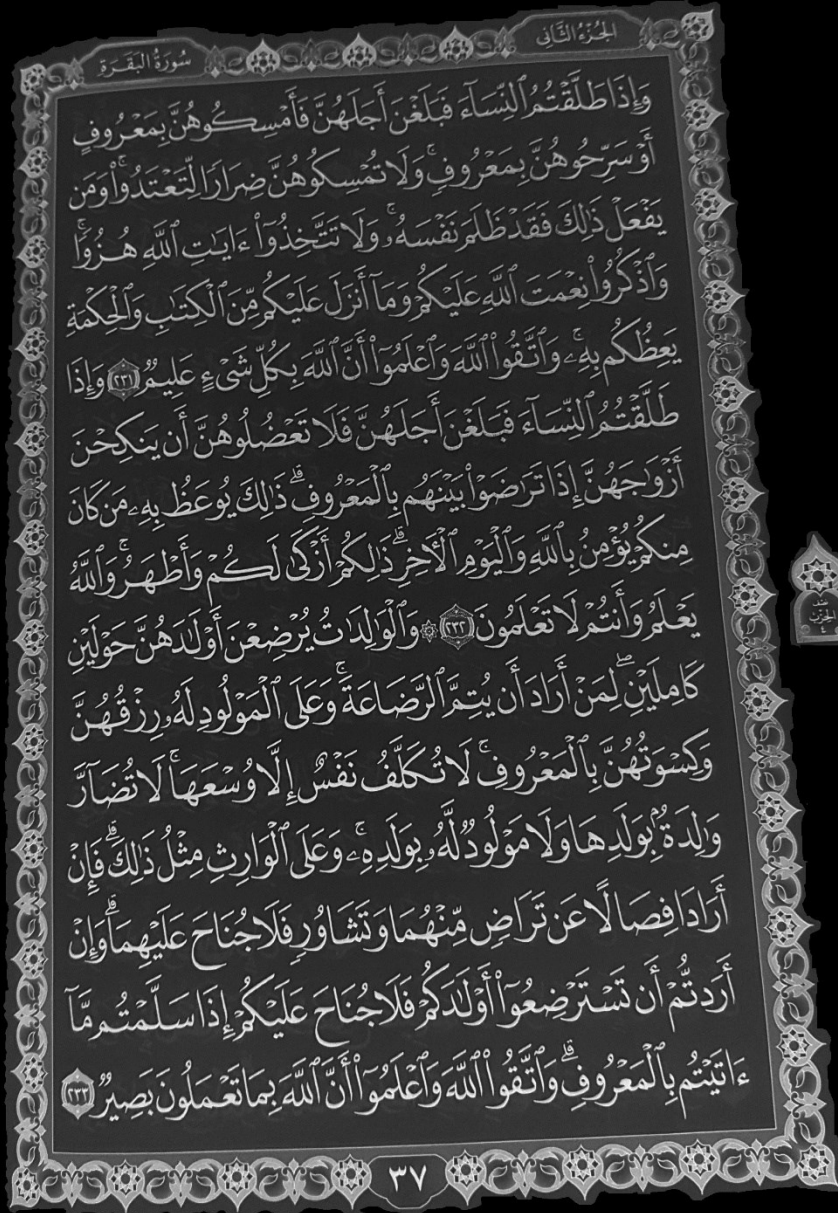 سُورَةُ البَقَرَةِ
الجُزْءُ الثَّانِي
وَإِذَا طَلَّقْتُمُ ٱلنِّسَآءَ فَبَلَغْنَ أَجَلَهُنَّ فَأَمْسِكُوهُنَّ بِمَعْرُوفٍ
أَوْ سَرِّحُوهُنَّ بِمَعْرُوفٍۚ وَلَا تُمْسِكُوهُنَّ ضِرَارًا لِّتَعْتَدُوا۟ۚ وَمَن
يَفْعَلْ ذَٰلِكَ فَقَدْ ظَلَمَ نَفْسَهُۥۚ وَلَا تَتَّخِذُوٓا۟ ءَايَٰتِ ٱللَّهِ هُزُوًاۚ
وَٱذْكُرُوا۟ نِعْمَتَ ٱللَّهِ عَلَيْكُمْ وَمَآ أَنزَلَ عَلَيْكُم مِّنَ ٱلْكِتَٰبِ وَٱلْحِكْمَةِ
يَعِظُكُم بِهِۦۚ وَٱتَّقُوا۟ ٱللَّهَ وَٱعْلَمُوٓا۟ أَنَّ ٱللَّهَ بِكُلِّ شَىْءٍ عَلِيمٌ ٢٣١ وَإِذَا
طَلَّقْتُمُ ٱلنِّسَآءَ فَبَلَغْنَ أَجَلَهُنَّ فَلَا تَعْضُلُوهُنَّ أَن يَنكِحْنَ
أَزْوَٰجَهُنَّ إِذَا تَرَٰضَوْا۟ بَيْنَهُم بِٱلْمَعْرُوفِۗ ذَٰلِكَ يُوعَظُ بِهِۦ مَن كَانَ
مِنكُمْ يُؤْمِنُ بِٱللَّهِ وَٱلْيَوْمِ ٱلْءَاخِرِۗ ذَٰلِكُمْ أَزْكَىٰ لَكُمْ وَأَطْهَرُۚ وَٱللَّهُ
يَعْلَمُ وَأَنتُمْ لَا تَعْلَمُونَ ٢٣٢ ۞ وَٱلْوَٰلِدَٰتُ يُرْضِعْنَ أَوْلَٰدَهُنَّ حَوْلَيْنِ
كَامِلَيْنِۖ لِمَنْ أَرَادَ أَن يُتِمَّ ٱلرَّضَاعَةَۚ وَعَلَى ٱلْمَوْلُودِ لَهُۥ رِزْقُهُنَّ
وَكِسْوَتُهُنَّ بِٱلْمَعْرُوفِۚ لَا تُكَلَّفُ نَفْسٌ إِلَّا وُسْعَهَاۚ لَا تُضَآرَّ
وَٰلِدَةٌۢ بِوَلَدِهَا وَلَا مَوْلُودٌ لَّهُۥ بِوَلَدِهِۦۚ وَعَلَى ٱلْوَارِثِ مِثْلُ ذَٰلِكَۗ فَإِنْ
أَرَادَا فِصَالًا عَن تَرَاضٍ مِّنْهُمَا وَتَشَاوُرٍ فَلَا جُنَاحَ عَلَيْهِمَاۗ وَإِنْ
أَرَدتُّمْ أَن تَسْتَرْضِعُوٓا۟ أَوْلَٰدَكُمْ فَلَا جُنَاحَ عَلَيْكُمْ إِذَا سَلَّمْتُم مَّآ
ءَاتَيْتُم بِٱلْمَعْرُوفِۗ وَٱتَّقُوا۟ ٱللَّهَ وَٱعْلَمُوٓا۟ أَنَّ ٱللَّهَ بِمَا تَعْمَلُونَ بَصِيرٌ ٢٣٣
٣٧